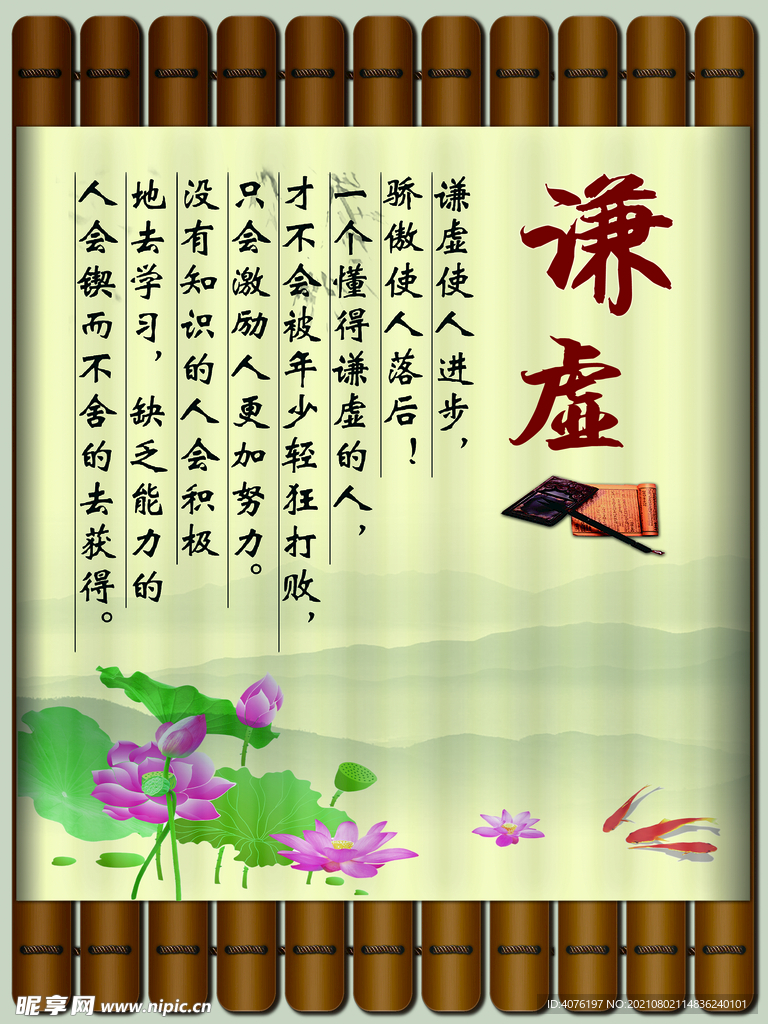 谦虚
谦虚使人进步，
骄傲使人落后！
一个懂得谦虚的人，
才不会被年少轻狂打败，
只会激励人更加努力。
没有知识的人会积极
地去学习，缺乏能力的
人会锲而不舍的去获得。
昵享网 www.nipic.cn
ID:4076197 NO:20210802114836240101